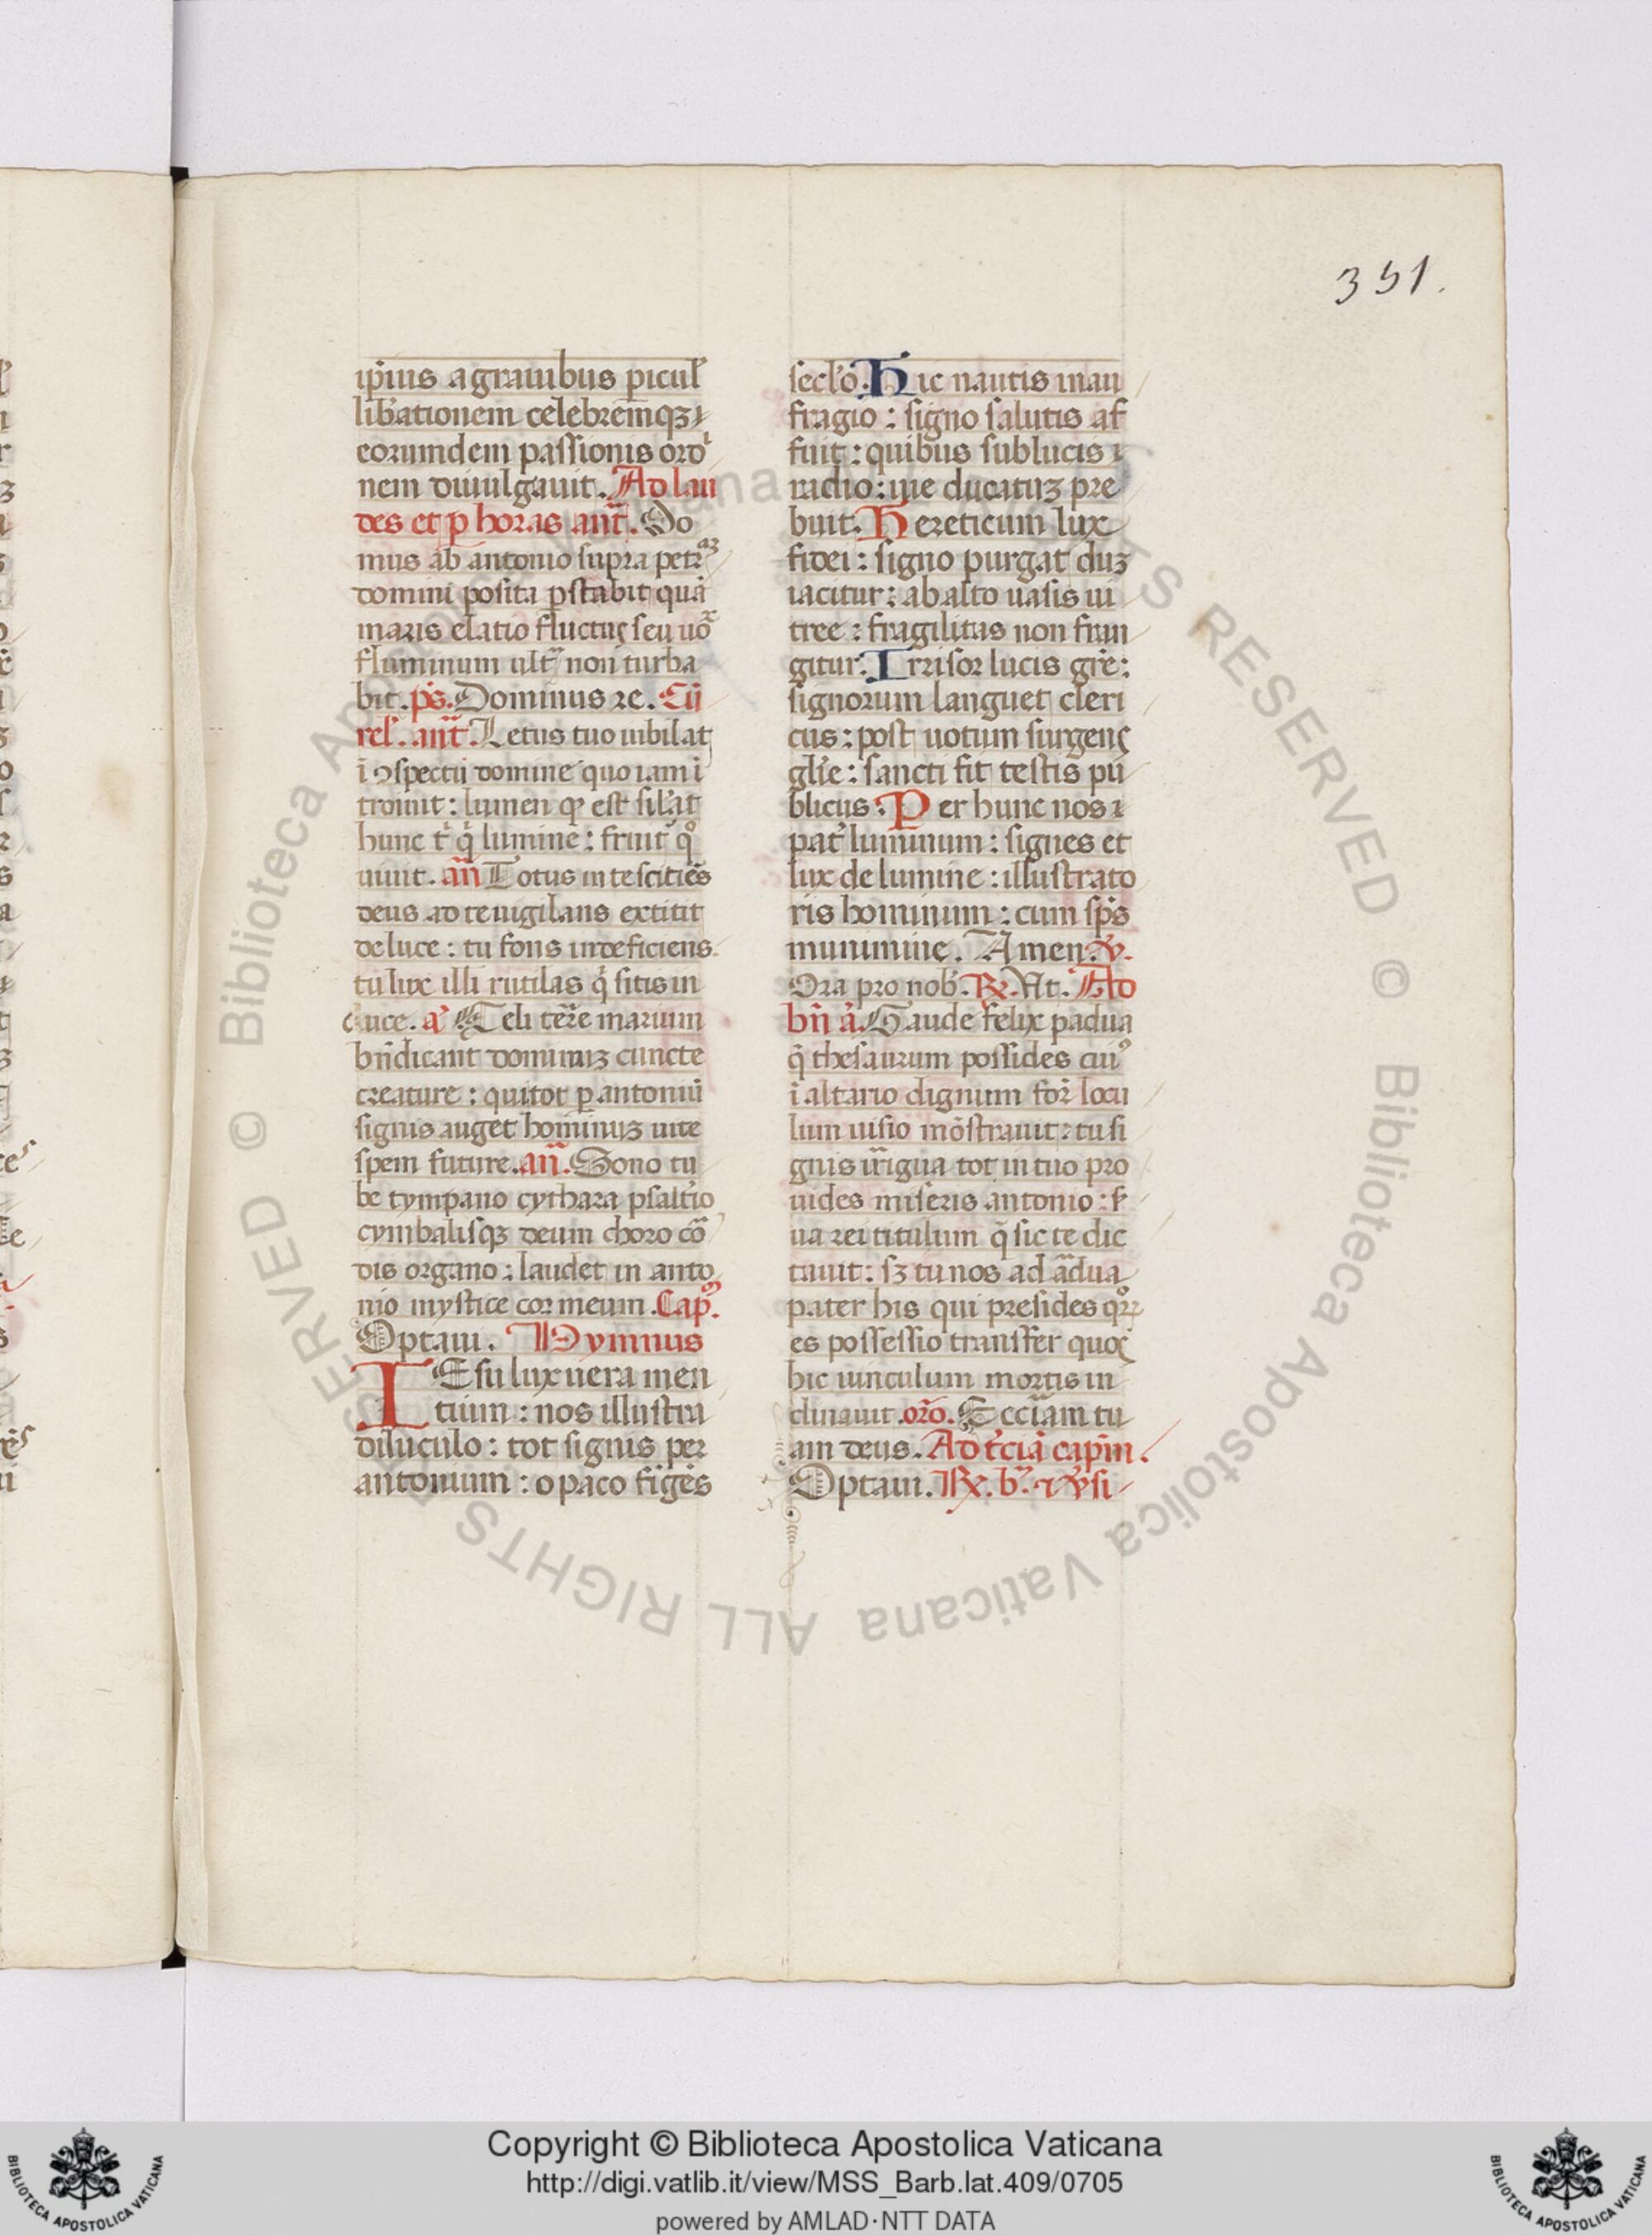 351.
ip̄ius a grauibus picul̓
lib̓ationem celebrēmqꝫ ⁊
eorumdem passionis ordi
nem diuulgauit. Ad lau
des et ꝑ horas ant̄. Do
mus ab antonio supra petrā
domini posita ꝑstabit quā
maris elatio fluctuꝫ seu uo
fluminum ult non turba
bit. ps̄. Dominus re. Cū
rel̓. ant̄. Letus tuo iubilat
ī ꝯspectu domine quo iam ī
troiuit: lumen qꝫ est sil̓at
hunc t̓ qͥ lumine: fruit̓ qͦ
uiuit. an̄ Totus in te sciēs
deus ad te uigilans extitit
de luce: tu fons indeficiens
tu lux illi rutilas qͥ sitis in
duce. a᷎ Celi terre marium
bn̄dicant dominuꝫ cuncte
creature: qui tot ꝑ antoniū
signis auget hominuꝫ uite
spem future. an̄. Sono tu
be tympano cythara psalt̓io
cymbalisqꝫ deum choro cō
dis organo: laudet in anto
nio mystice cor meum. Cap̄.
Optaui. Hymnus
IEsu lux uera men
tium: nos illustra
diluculo: tot signis per
antonium: opaco fi̓gēs
secl̓o. Hic nautis in nau
fragio: signo salutis af
fuit: quibus sub lucis ⁊
radio: uie ducatuꝫ pre
buit. Hereticum lux
fidei: signo purgat duꝫ
iacitur: ab alto uasis ui
tree: fragilitas non fran
gitur. Irrisor lucis gr̄e:
signorum languet cleri
cus: post uotum surgens
gl̄ie: sancti fit testis pu
blicus. Per hunc nos ⁊
pat̓ luminum: signes et
lux de lumine: illustrato
ris hominum: cum sp̄s
munimine. Amen. ℣.
Ora pro nob̓. ℟. Ut. Ad
bn̄ ā. Gaude felix padua
q̄ thesaurum possides cui᷒
ī altario dignum for̄ locu
lum uisio mōstrauit: tu si
gnis irrigua tot in tuo pro
uides miseris antonio: s̓
ua rei titulum q̄ sic te dic
tauit: sꝫ tu nos ad ādua
pater his qui presides qͦꝝ
es possessio transfer quos
hic uinculum mortis in
clinauit. orō. Ecc̄iam tu
am deus. Ad t̓ciā capm̄.
Optaui. ℟. b̓. ⁊ ℣si
Copyright © Biblioteca Apostolica Vaticana
http://digi.vatlib.it/view/MSS_Barb.lat.409/0705
powered by AMLAD·NTT DATA
© Biblioteca Apostolica Vaticana ALL RIGHTS RESERVED
BIBLIOTECA APOSTOLICA VATICANA
BIBLIOTECA APOSTOLICA VATICANA